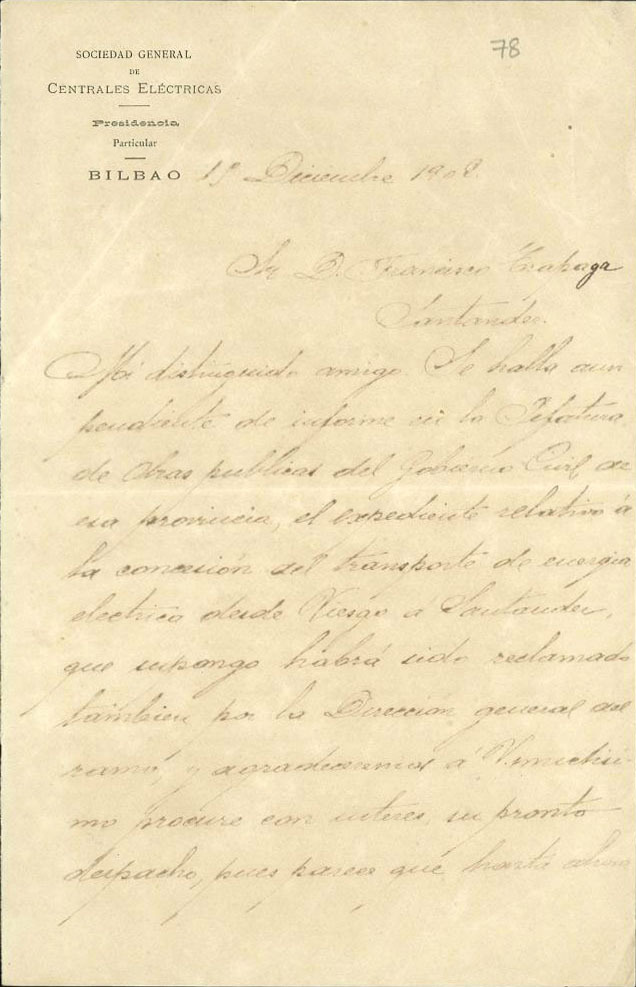 78
SOCIEDAD GENERAL
DE
CENTRALES ELÉCTRICAS
Presidencia
Particular
BILBAO 19 Diciembre 1908
Sr D. Francisco
Santander.
Mi distinguido amigo. Se halla aun
pendiente de informe en la Jefatura
de Obras publicas del Gobierno Civil de
esa provincia, el expediente relativo á
la concesión del transporte de energia
electrica desde Viesgo a Santander,
que supongo habrá sido reclamado
tambien por la Dirección general del
ramo, y á V. muchisi-
mo procure con interes, su pronto
despacho, pues parece que hasta ahora